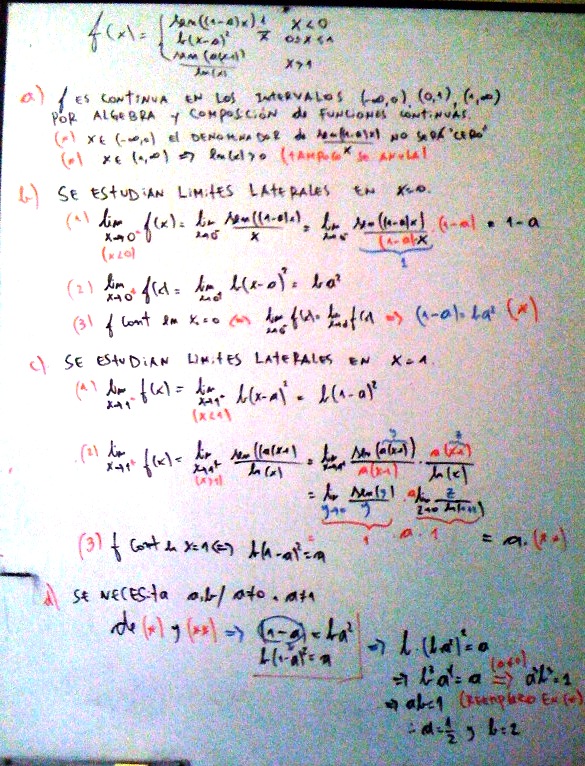 f(x) = { sen((1-a)x) 1/x   x<0
b(x-a)²   0≤x≤1
sen(a(x-1)) / ln(x)   x>1
a) f ES CONTINUA EN LOS INTERVALOS (-∞,0), (0,1), (1,∞)
POR ALGEBRA Y COMPOSICIÓN de FUNCIONES CONTINUAS.
x ∈ (-∞,0) el DENOMINADOR de sen((1-a)x)/x NO SERÁ "CERO"
x ∈ (1,∞) ⇒ ln(x)>0 (TAMPOCO SE ANULA)
b) SE ESTUDIAN LIMITES LATERALES EN x=0.
(1) lim x→0⁻ f(x) = lim x→0⁻ sen((1-a)x)/x = lim x→0⁻ sen((1-a)x)/((1-a)·x) (1-a) = 1-a
(x<0) 1
(2) lim x→0⁺ f(x) = lim x→0⁺ b(x-a)² = ba²
(3) f cont en x=0 ⇔ lim x→0⁻ f(x) = lim x→0⁺ f(x) ⇒ (1-a) = ba² (*)
c) SE ESTUDIAN LIMITES LATERALES EN x=1.
(1) lim x→1⁻ f(x) = lim x→1⁻ b(x-a)² = b(1-a)²
(x<1)
(2) lim x→1⁺ f(x) = lim x→1⁺ sen(a(x-1))/ln(x) = lim x→1⁺ sen(a(x-1))/a(x-1) · a(x-1)/ln(x)
(x>1) y z
= lim y→0 sen(y)/y · a lim z→0 z/ln(1+z)
= 1 · a · 1 = a. (**)
(3) f cont en x=1 ⇔ b(1-a)² = a
d) SE NECESITA a,b / a≠0 ∧ a≠1
de (*) y (**) ⇒ (1-a) = ba²
b(1-a)² = a
⇒ b·(ba²)² = a
⇒ b³a⁴ = a (a≠0) ⇒ a³b³ = 1
⇒ ab=1 (REEMPLAZO EN (*))
∴ a = 1/2 y b=2